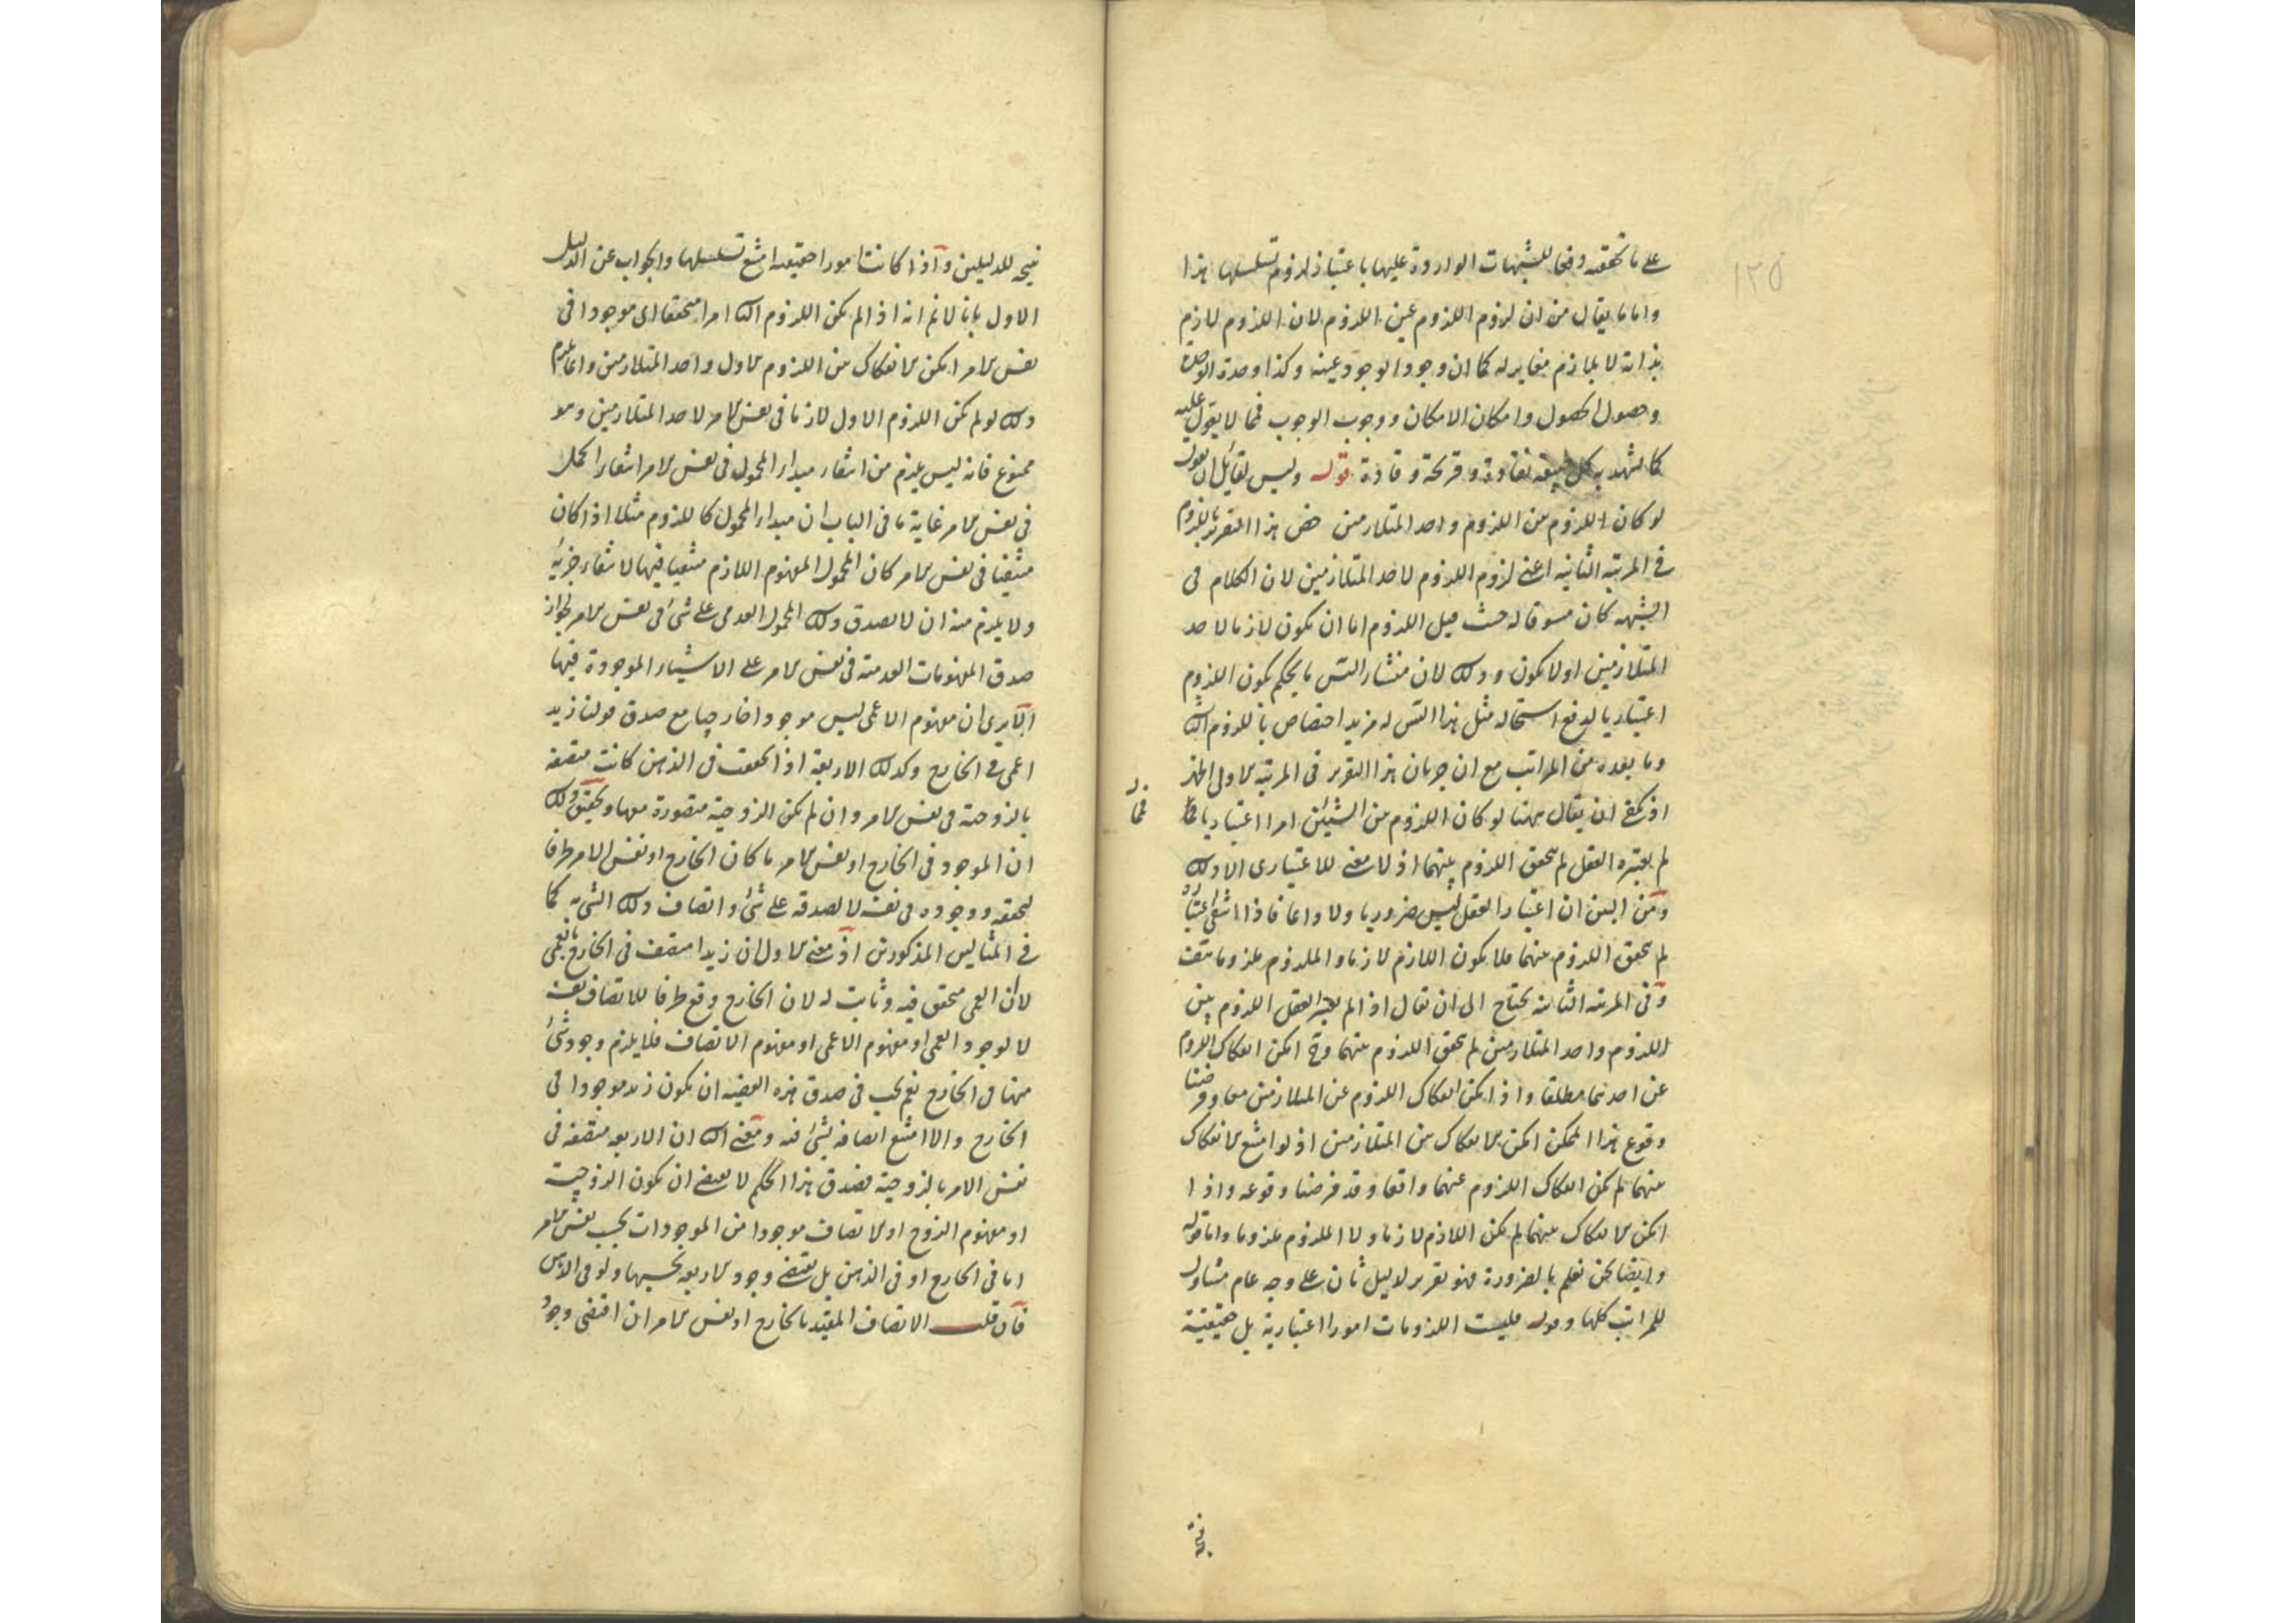 على ما تحققه دفعا للشبهات الواردة عليها باعتبار لزوم تسلسلها هذا
واما ما يقال من ان لزوم اللزوم عين اللزوم لان اللزوم لازم
بذاته لا بلازم مغاير له كما ان وجود الوجود عينه وكذا وحدة الوحدة
وحصول الحصول وامكان الامكان ووجوب الوجوب فمما لا يقول عليه
كما يشهد به كل نقادة وقريحة وقادة قوله وليس لقائل ان يقول
لو كان اللزوم بين اللزوم واحد المتلازمين خص هذا التقرير باللزوم
في المرتبة الثانية اعني لزوم اللزوم لاحد المتلازمين لان الكلام في
الشبهة كان مسوقا له حيث قيل اللزوم اما ان يكون لازما لاحد
المتلازمين او لا يكون وذلك لان منشأ التس ما يحكم بكون اللزوم
اعتباريا لدفع استحالة مثل هذا التس له مزيد اختصاص باللزوم الثا
وما بعده من المراتب مع ان جريان هذا التقرير في المرتبة الاولى اظهر
اذ يكفي ان يقال ههنا لو كان اللزوم بين الشيئين امرا اعتباريا فما
لم يعتبره العقل لم يتحقق اللزوم بينهما اذ لا معنى للاعتباري الا ذلك
ومن البين ان اعتبار العقل ليس ضروريا ولا واجبا فاذا انتفى اعتباره
لم يتحقق اللزوم بينهما فلا يكون اللازم لازما والملزوم ملزوما هف
وفي المرتبة الثانية يحتاج الى ان يقال اذا لم يعتبر العقل اللزوم بين
اللزوم واحد المتلازمين لم يتحقق اللزوم بينهما وح امكن انفكاك اللزوم
عن احدهما مطلقا واذا امكن انفكاك اللزوم عن المتلازمين معا وفرضنا
وقوع هذا الممكن امكن الانفكاك بين المتلازمين اذ لو امتنع الانفكاك
بينهما لم يكن انفكاك اللزوم عنهما واقعا وقد فرضنا وقوعه واذا
امكن الانفكاك بينهما لم يكن اللازم لازما ولا الملزوم ملزوما واما قوله
وايضا نحن نعلم بالضرورة فهو تقرير لدليل ثان على وجه عام متناول
للمراتب كلها وقوله فليست اللزومات امورا اعتبارية بل حقيقية
نتيجة للدليلين واذا كانت امورا حقيقية امتنع تسلسلها والجواب عن الدليل
الاول بانا لا نم انه اذا لم يكن اللزوم الثا امرا متحققا اي موجودا في
نفس الامر امكن الانفكاك بين اللزوم الاول واحد المتلازمين وانما يلزم
ذلك لو لم يكن اللزوم الاول لازما في نفس الامر لاحد المتلازمين وهو
ممنوع فانه ليس يلزم من انتفاء مبدأ المحمول في نفس الامر انتفاء الحمل
في نفس الامر غاية ما في الباب ان مبدأ المحمول كاللزوم مثلا اذا كان
منتفيا في نفس الامر كان المحمول المفهوم اللازم منتفيا فيها لانتفاء جزئه
ولا يلزم منه ان لا يصدق ذلك المحمول العدمي على شئ في نفس الامر لجواز
صدق المفهومات العدمية في نفس الامر على الاشياء الموجودة فيها
الا يرى ان مفهوم الاعمى ليس موجودا خارجيا مع صدق قولنا زيد
اعمى في الخارج وكذلك الاربعة اذا تحققت في الذهن كانت متصفة
بالزوجية في نفس الامر وان لم تكن الزوجية متصورة معها وتحقيق ذلك
ان الموجود في الخارج او نفس الامر ما كان الخارج او نفس الامر ظرفا
لتحققه ووجوده في نفسه لا لصدقه على شئ واتصاف ذلك الشئ به كما
في المثالين المذكورين اذ معنى الاول ان زيدا متصف في الخارج بالعمى
لا ان العمى متحقق فيه وثابت له لان الخارج وقع ظرفا للاتصاف نفسه
لا لوجود العمى او مفهوم الاعمى او مفهوم الاتصاف فلا يلزم وجود شئ
منها في الخارج نعم يجب في صدق هذه القضية ان يكون زيد موجودا في
الخارج والا امتنع اتصافه بشئ فيه ومعنى الثا ان الاربعة متصفة في
نفس الامر بالزوجية فصدق هذا الحكم لا يقتضي ان يكون الزوجية
او مفهوم الزوج او الاتصاف موجودا من الموجودات بحسب نفس الامر
اما في الخارج او في الذهن بل يقتضي وجود الاربعة بحسبها ولو في الذهن
فان قلت الاتصاف المقيد بالخارج او نفس الامر ان اقتضى وجود
١٢٥